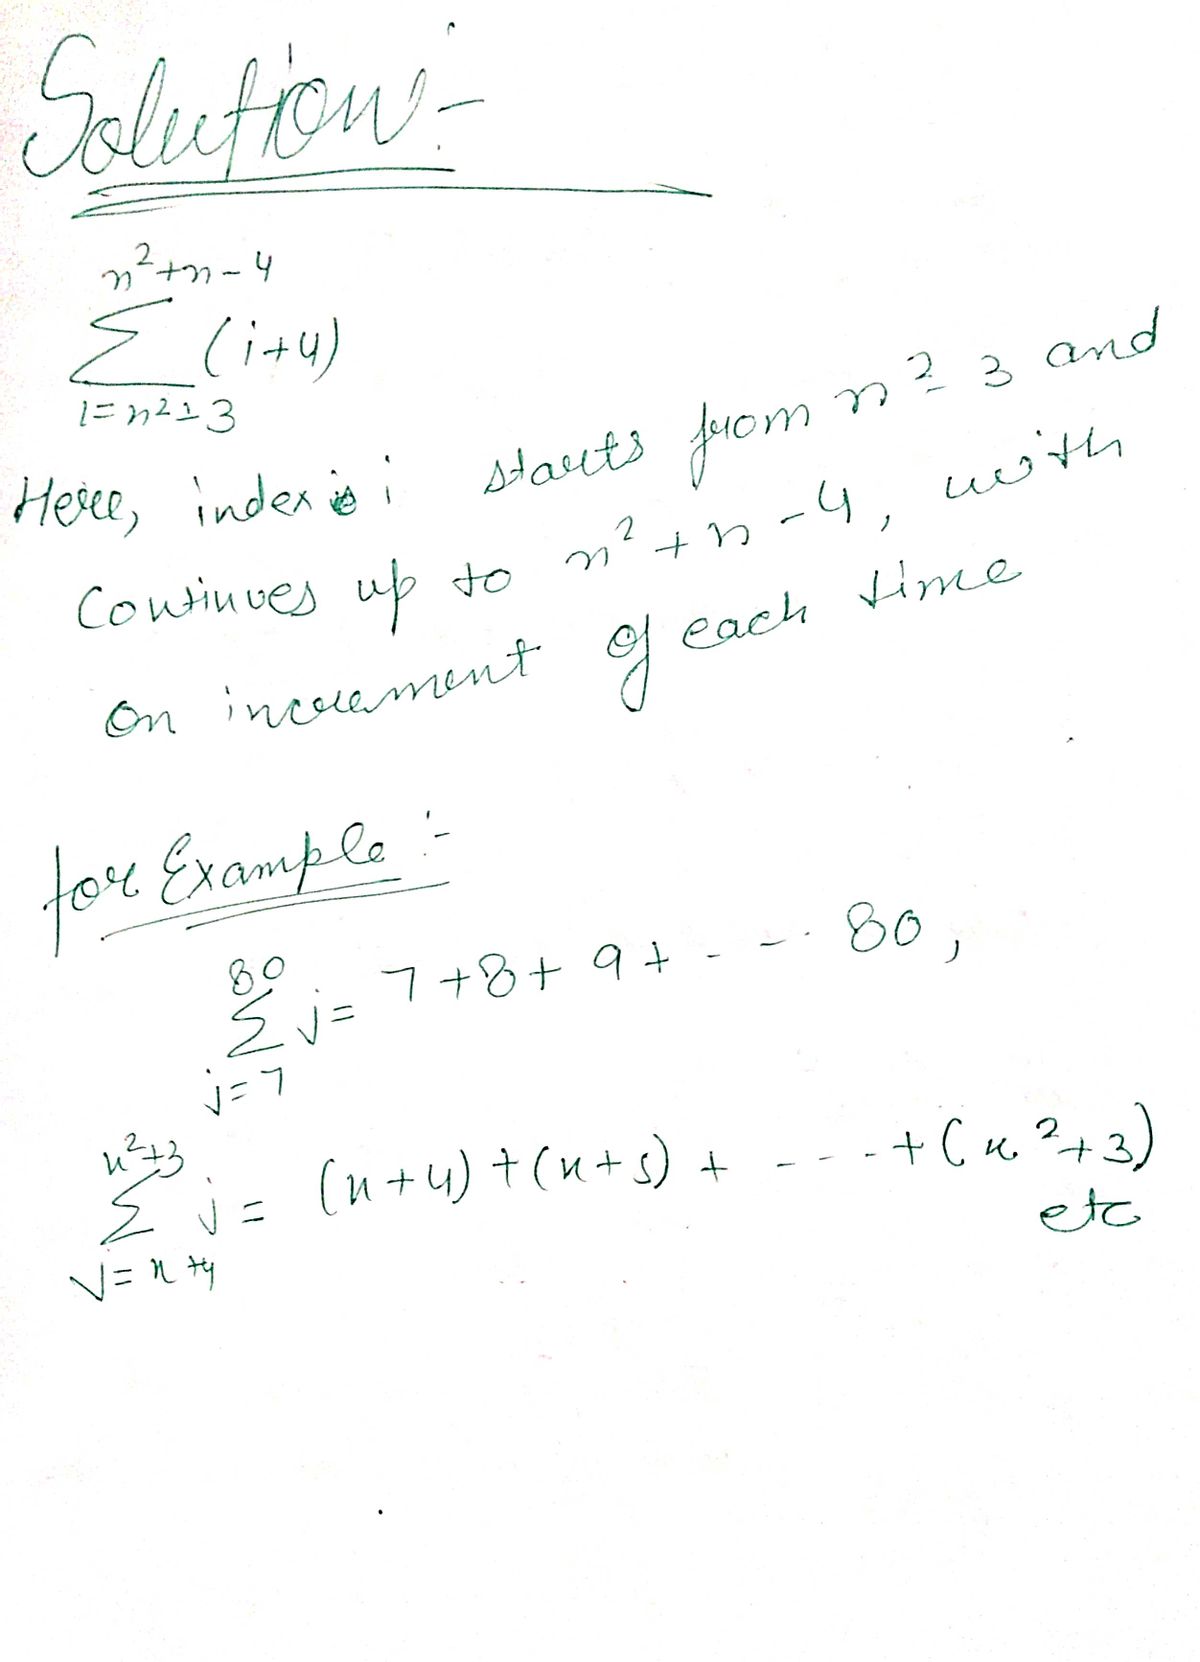 Solution:-
n²+n-4
Σ (i+4)
i=n²-3
Here, index i starts from n²-3 and
Continues up to n²+n-4, with
on increment of each time
for Example:-
80
Σ j= 7+8+9+---80,
j=7
n²+3
Σ j= (n+4)+(n+5)+----+(n²+3)
etc
j=n+4